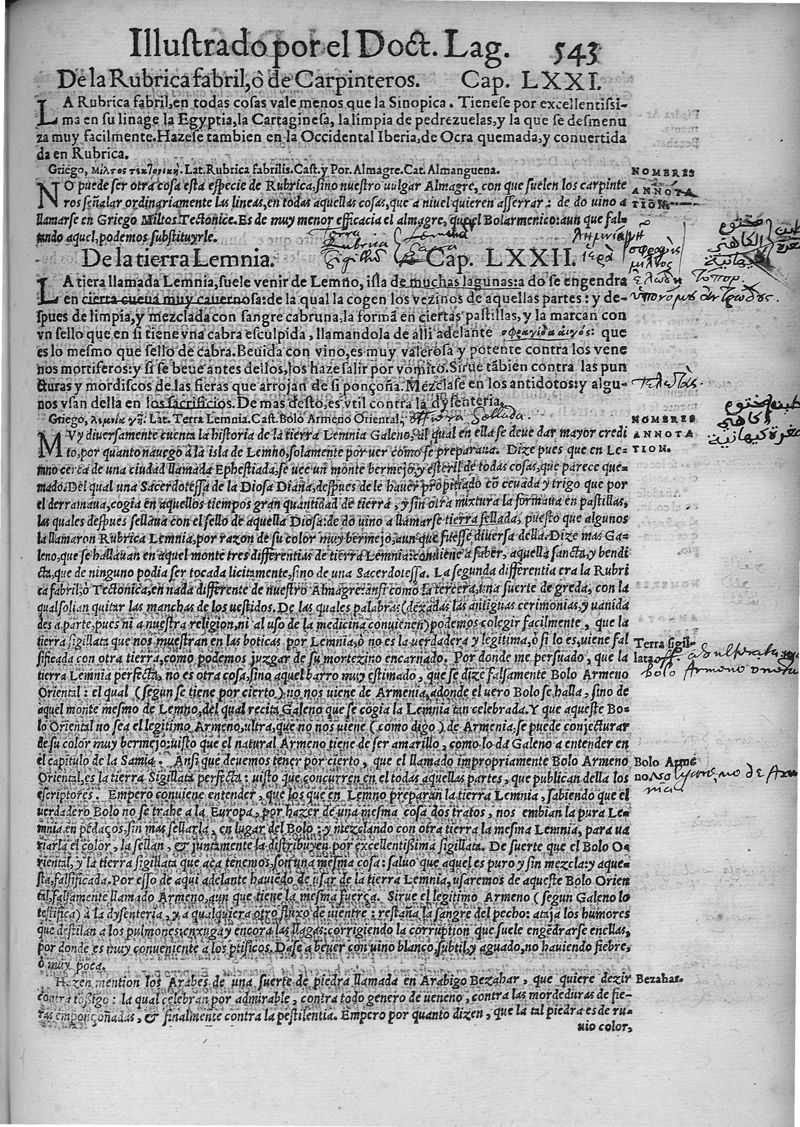 Illustrado por el Doct. Lag. 543
De la Rubrica fabril, ò de Carpinteros. Cap. LXXI.
LA Rubrica fabril, en todas cosas vale menos que la Sinopica. Tienese por excellentissi-
ma en su linage la Egyptia, la Cartaginesa, la limpia de pedrezuelas, y la que se desmenu
za muy facilmente. Hazese tambien en la Occidental Iberia, de Ocra quemada, y conuertida
da en Rubrica.
Griego, Μίλτος τεκτονική. Lat. Rubrica fabrilis. Cast. y Por. Almagre. Cat. Almanguena.
NOMBRES
NO puede ser otra cosa esta especie de Rubrica, sino nuestro uulgar Almagre, con que suelen los carpinte
ros señalar ordinariamente las lineas, en todas aquellas cosas, que a niuel quieren asserrar: de do uino a
llamarse en Griego Miltos Tectonice. Es de muy menor efficacia el almagre, que el Bolarmenico: aun que fal-
tando aquel, podemos substituyrle.
ANNOTA
TION.
De la tierra Lemnia. Cap. LXXII.
LA tiera llamada Lemnia, suele venir de Lemno, isla de muchas lagunas: a do se engendra
en cierta cueua muy cauernosa: de la qual la cogen los vezinos de aquellas partes: y de-
spues de limpia, y mezclada con sangre cabruna, la forma en ciertas pastillas, y la marcan con
vn sello que en si tiene vna cabra esculpida, llamandola de alli adelante σφραγίδα αἰγός: que
es lo mesmo que sello de cabra. Beuida con vino, es muy valerosa y potente contra los vene
nos mortiferos: y si se beue antes dellos, los haze salir por vomito. Sirue tābien contra las pun
cturas y mordiscos de las fieras que arrojan de si ponçoña. Mezclase en los antidotos: y algu-
nos vsan della en los sacrificios. De mas desto, es vtil contra la dysenteria.
Griego, λημνία γῆ. Lat. Terra Lemnia. Cast. Bolo Armeno Oriental,
NOMBRES
MVy diuersamente cuenta la historia de la tierra Lemnia Galeno, al qual en ella se deue dar mayor credi
to, por quanto nauegò à la isla de Lemno, solamente por uer como se preparaua. Dize pues que en Le-
mno cerca de una ciudad llamada Ephestiada, se uee un monte bermejo, y esteril de todas cosas, que parece que-
mado. Del qual una Sacerdotessa de la Diosa Diana, despues de le hauer propitiado cō ceuada y trigo que por
el derramaua, cogia en aquellos tiempos gran quantidad de tierra, y sin otra mixtura la formaua en pastillas,
las quales despues sellaua con el sello de aquella Diosa: de dō uino a llamarse tierra sellada, puesto que algunos
la llamaron Rubrica Lemnia, por razon de su color muy bermejo, aun que fuesse diuersa della. Dize mas Ga-
leno, que se hallauan en aquel monte tres differentias de tierra Lemnia: conuiene a saber, aquella sancta, y bendi
cta, que de ninguno podia ser tocada licitamente, sino de una Sacerdotessa. La segunda differentia era la Rubri
ca fabril, ò Tectonica, en nada differente de nuestro Almagre: ansi como la tercera, una suerte de greda, con la
qual solian quitar las manchas de los uestidos. De las quales palabras (dexadas las antiguas cerimonias, y uanida
des a parte, pues ni a nuestra religion, ni al uso de la medicina conuienen) podemos colegir facilmente, que la
tierra sigillata que nos muestran en las boticas por Lemnia, ò no es la verdadera y legitima, ò si lo es, uiene fal
sificada con otra tierra, como podemos juzgar de su mortezino encarnado. Por donde me persuado, que la
tierra Lemnia perfecta, no es otra cosa, sino aquel barro muy estimado, que se dize falsamente Bolo Armeno
Oriental: el qual (segun se tiene por cierto) no nos uiene de Armenia, adonde el uero Bolo se halla, sino de
aquel monte mesmo de Lemno, del qual recita Galeno que se cogia la Lemnia tan celebrada. Y que aqueste Bo-
lo Oriental no sea el legitimo Armeno, ultra, que no nos uiene (como digo) de Armenia, se puede conjecturar
de su color muy bermejo: uisto que el natural Armeno tiene de ser amarillo, como lo da Galeno a entender en
el capitulo de la Samia. Ansi que deuemos tener por cierto, que el llamado impropriamente Bolo Armeno
Oriental, es la tierra Sigillata perfecta: uisto que concurren en el todas aquellas partes, que publican della los
escriptores. Empero conuiene entender, que los que en Lemno preparan la tierra Lemnia, sabiendo que el
verdadero Bolo no se trahe a la Europa, por hazer de una mesma cosa dos tratos, nos embian la pura Le-
mnia en pedaços, sin mas sellarla, en lugar del Bolo: y mezclando con otra tierra la mesma Lemnia, para ua
riarla el color, la sellan, & juntamente la distribuyen por excellentissima sigillata. De suerte que el Bolo O-
riental, y la tierra sigillata que aca tenemos, son una mesma cosa: saluo que aquel es puro y sin mezcla: y aque-
sta, falsificada. Por esso de aqui adelante hauiēdo de usar de la tierra Lemnia, usaremos de aqueste Bolo Orien
tal, falsamente llamado Armeno, aun que tiene la mesma fuerça. Sirue el legitimo Armeno (segun Galeno lo
testifica) à la dysenteria, y a qualquiera otro fluxo de uientre: restaña la sangre del pecho: ataja los humores
que destilan a los pulmones: enxuga y encora las llagas: corrigiendo la corruption que suele engēdrarse enellas,
por donde es muy conueniente a los ptisicos. Dase a beuer con uino blanco, subtil, y aguado, no hauiendo fiebre,
ò muy poca.
ANNOTA
TION.
Terra sigil-
lata.
Bolo Armē
no.
Hazen mention los Arabes de una suerte de piedra llamada en Arabigo Bezahar, que quiere dezir
contra toßigo: la qual celebran por admirable, contra todo genero de ueneno, contra las mordeduras de fie-
ras emponçoñadas, & finalmente contra la pestilentia. Empero por quanto dizen, que la tal piedra es de ru-
uio color,
Bezahar.